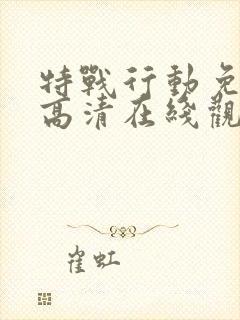 特戰行動免
高清在綫觀
崔虹